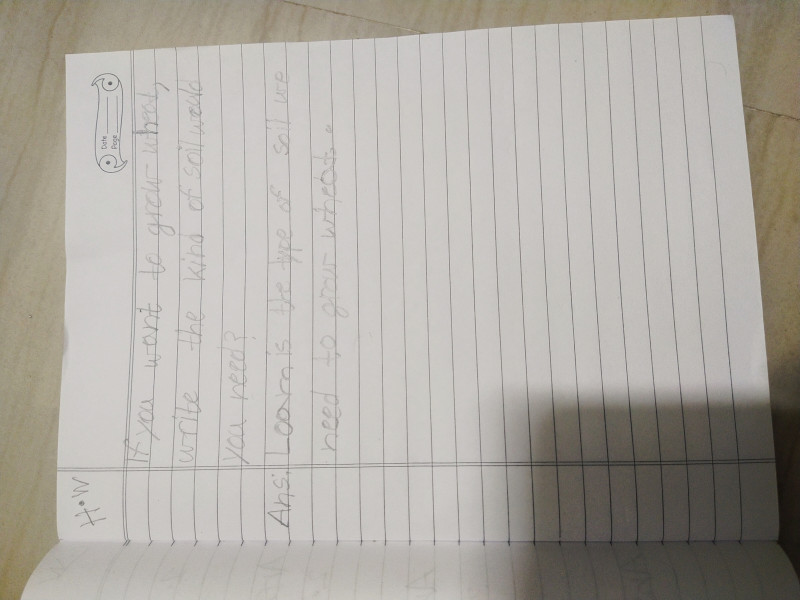 Date
Page
H.W
If you want to grow wheat,
write the kind of soil would
you need?
Ans: Loam is the type of soil we
need to grow wheat.